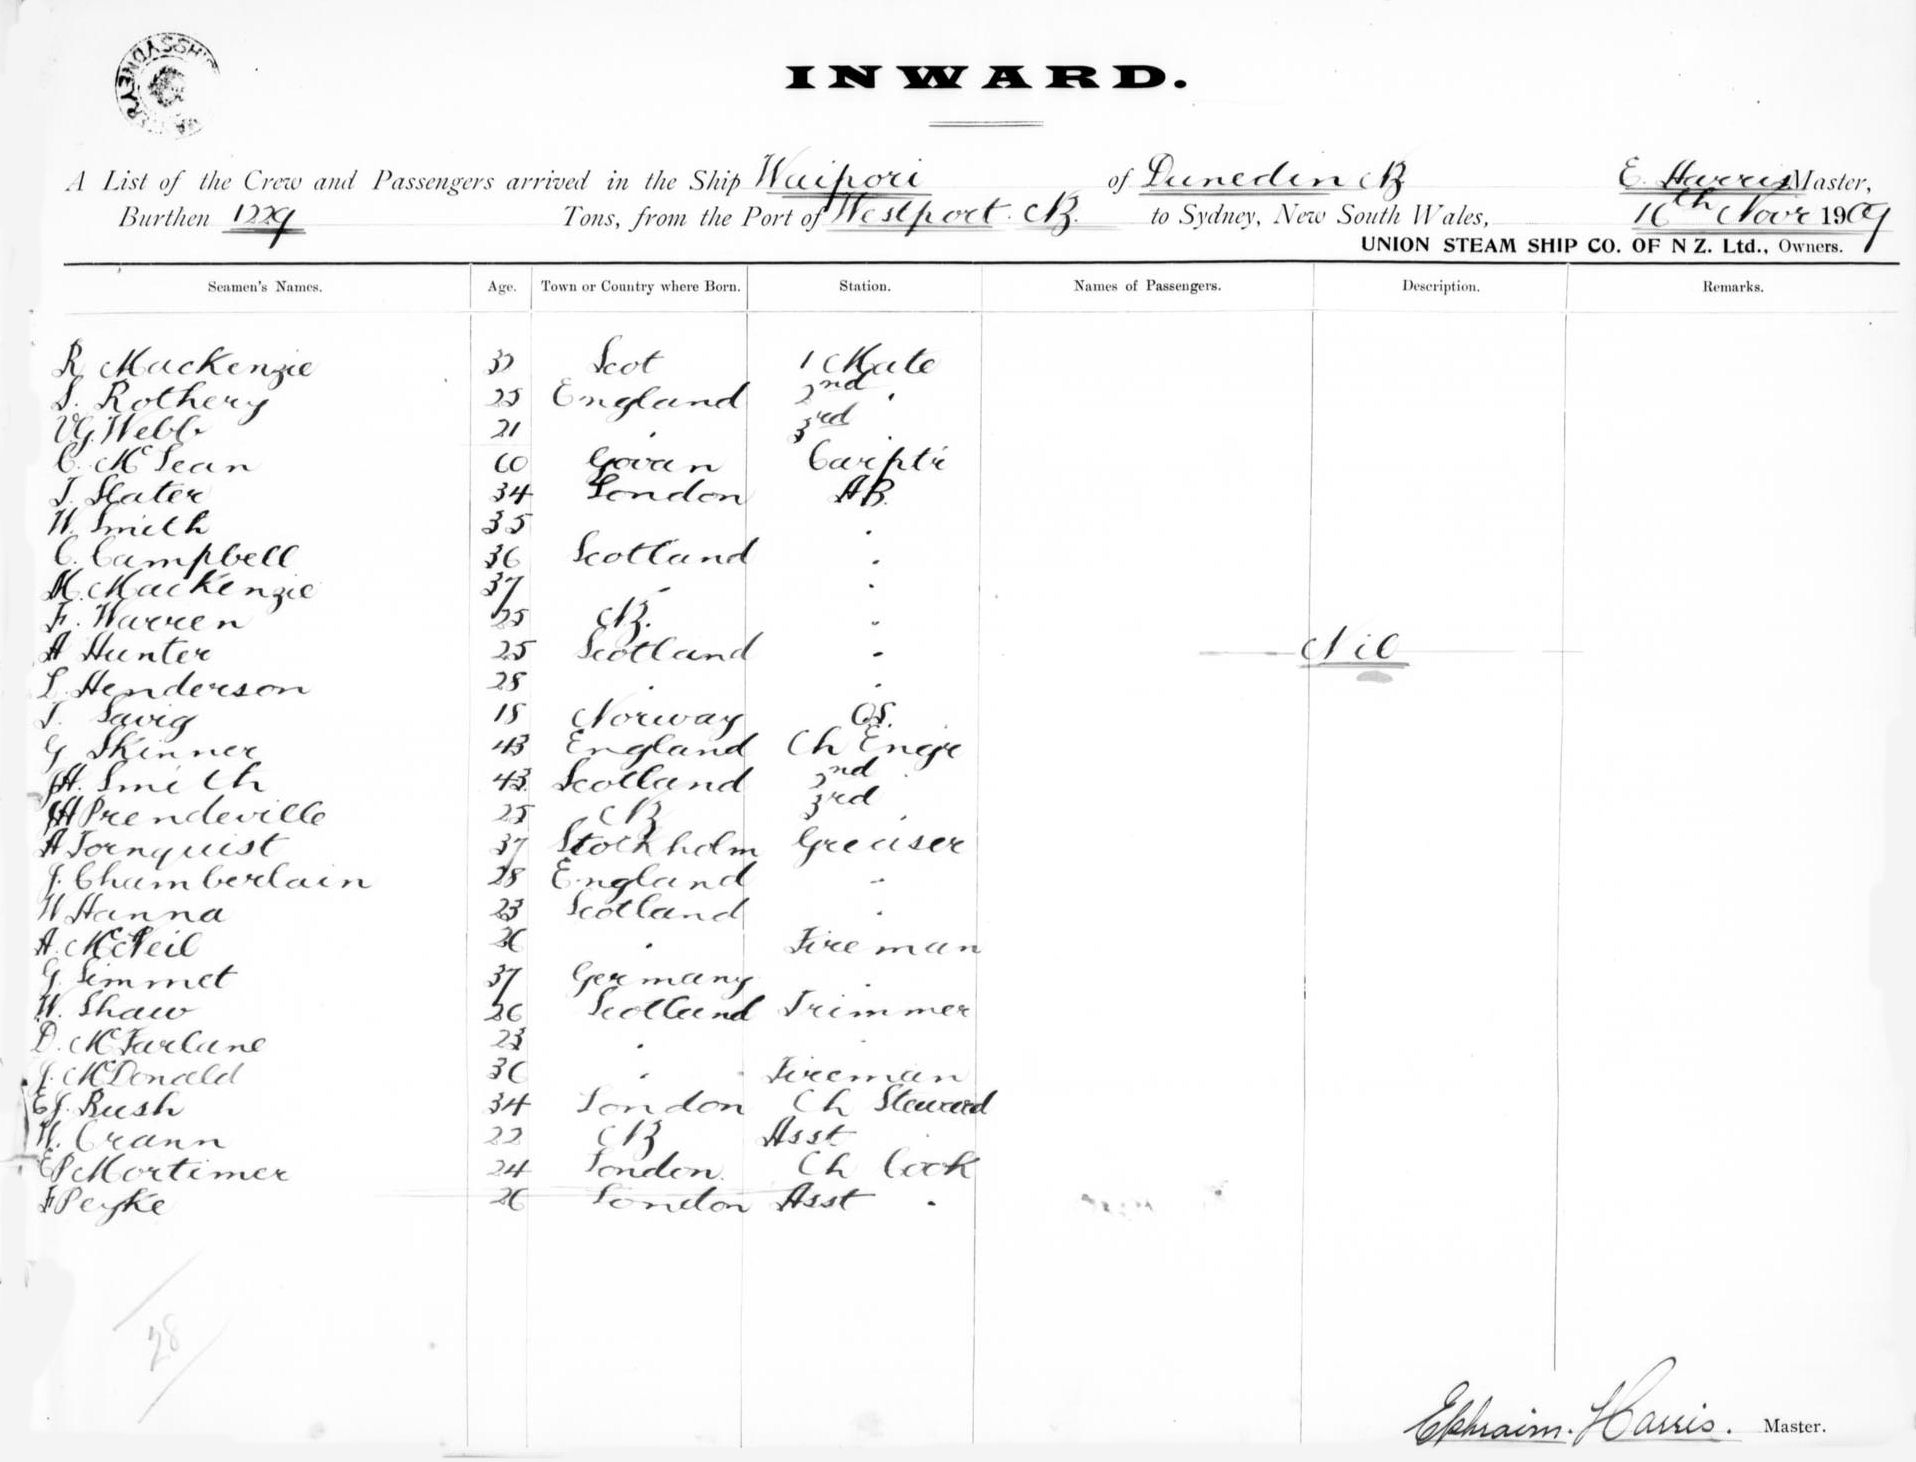 INWARD.
A List of the Crew and Passengers arrived in the Ship Waipori of Dunedin NZ E. Harris Master,
Burthen 1229 Tons, from the Port of Westport NZ. to Sydney, New South Wales, 16th Novr 1909
UNION STEAM SHIP CO. OF N Z. Ltd., Owners.
Seamen's Names. Age. Town or Country where Born. Station. Names of Passengers. Description. Remarks.
R Mackenzie Scot 1 Mate
S. Rothery 25 England 2nd "
VG Webb 21 " 3rd "
C. McLean 60 Govan Carptr
J. Slater 34 London AB.
W. Smith 35 "
C. Campbell 36 Scotland "
M. Mackenzie 37 " "
F. Warren 25 NZ. "
A Hunter 25 Scotland " Nil
L. Henderson 28 " "
T. Savig 18 Norway OS.
G Skinner 43 England Ch Engr
JH. Smith 43 Scotland 2nd "
JH Prendeville 25 NZ 3rd "
A Tornquist 37 Stockholm Greaser
J. Chamberlain 28 England "
W Hanna 23 Scotland "
A. McNeil 26 " Fireman
G. Simmet 37 Germany "
W. Shaw 26 Scotland Trimmer
D. McFarlane 23 " "
J. McDonald 30 " Fireman
EJ. Rush 34 London Ch Steward
Crann 22 NZ Asst "
EP Mortimer 24 London. Ch Cook
F Peyke 26 London Asst "
28
Ephraim. Harris. Master.